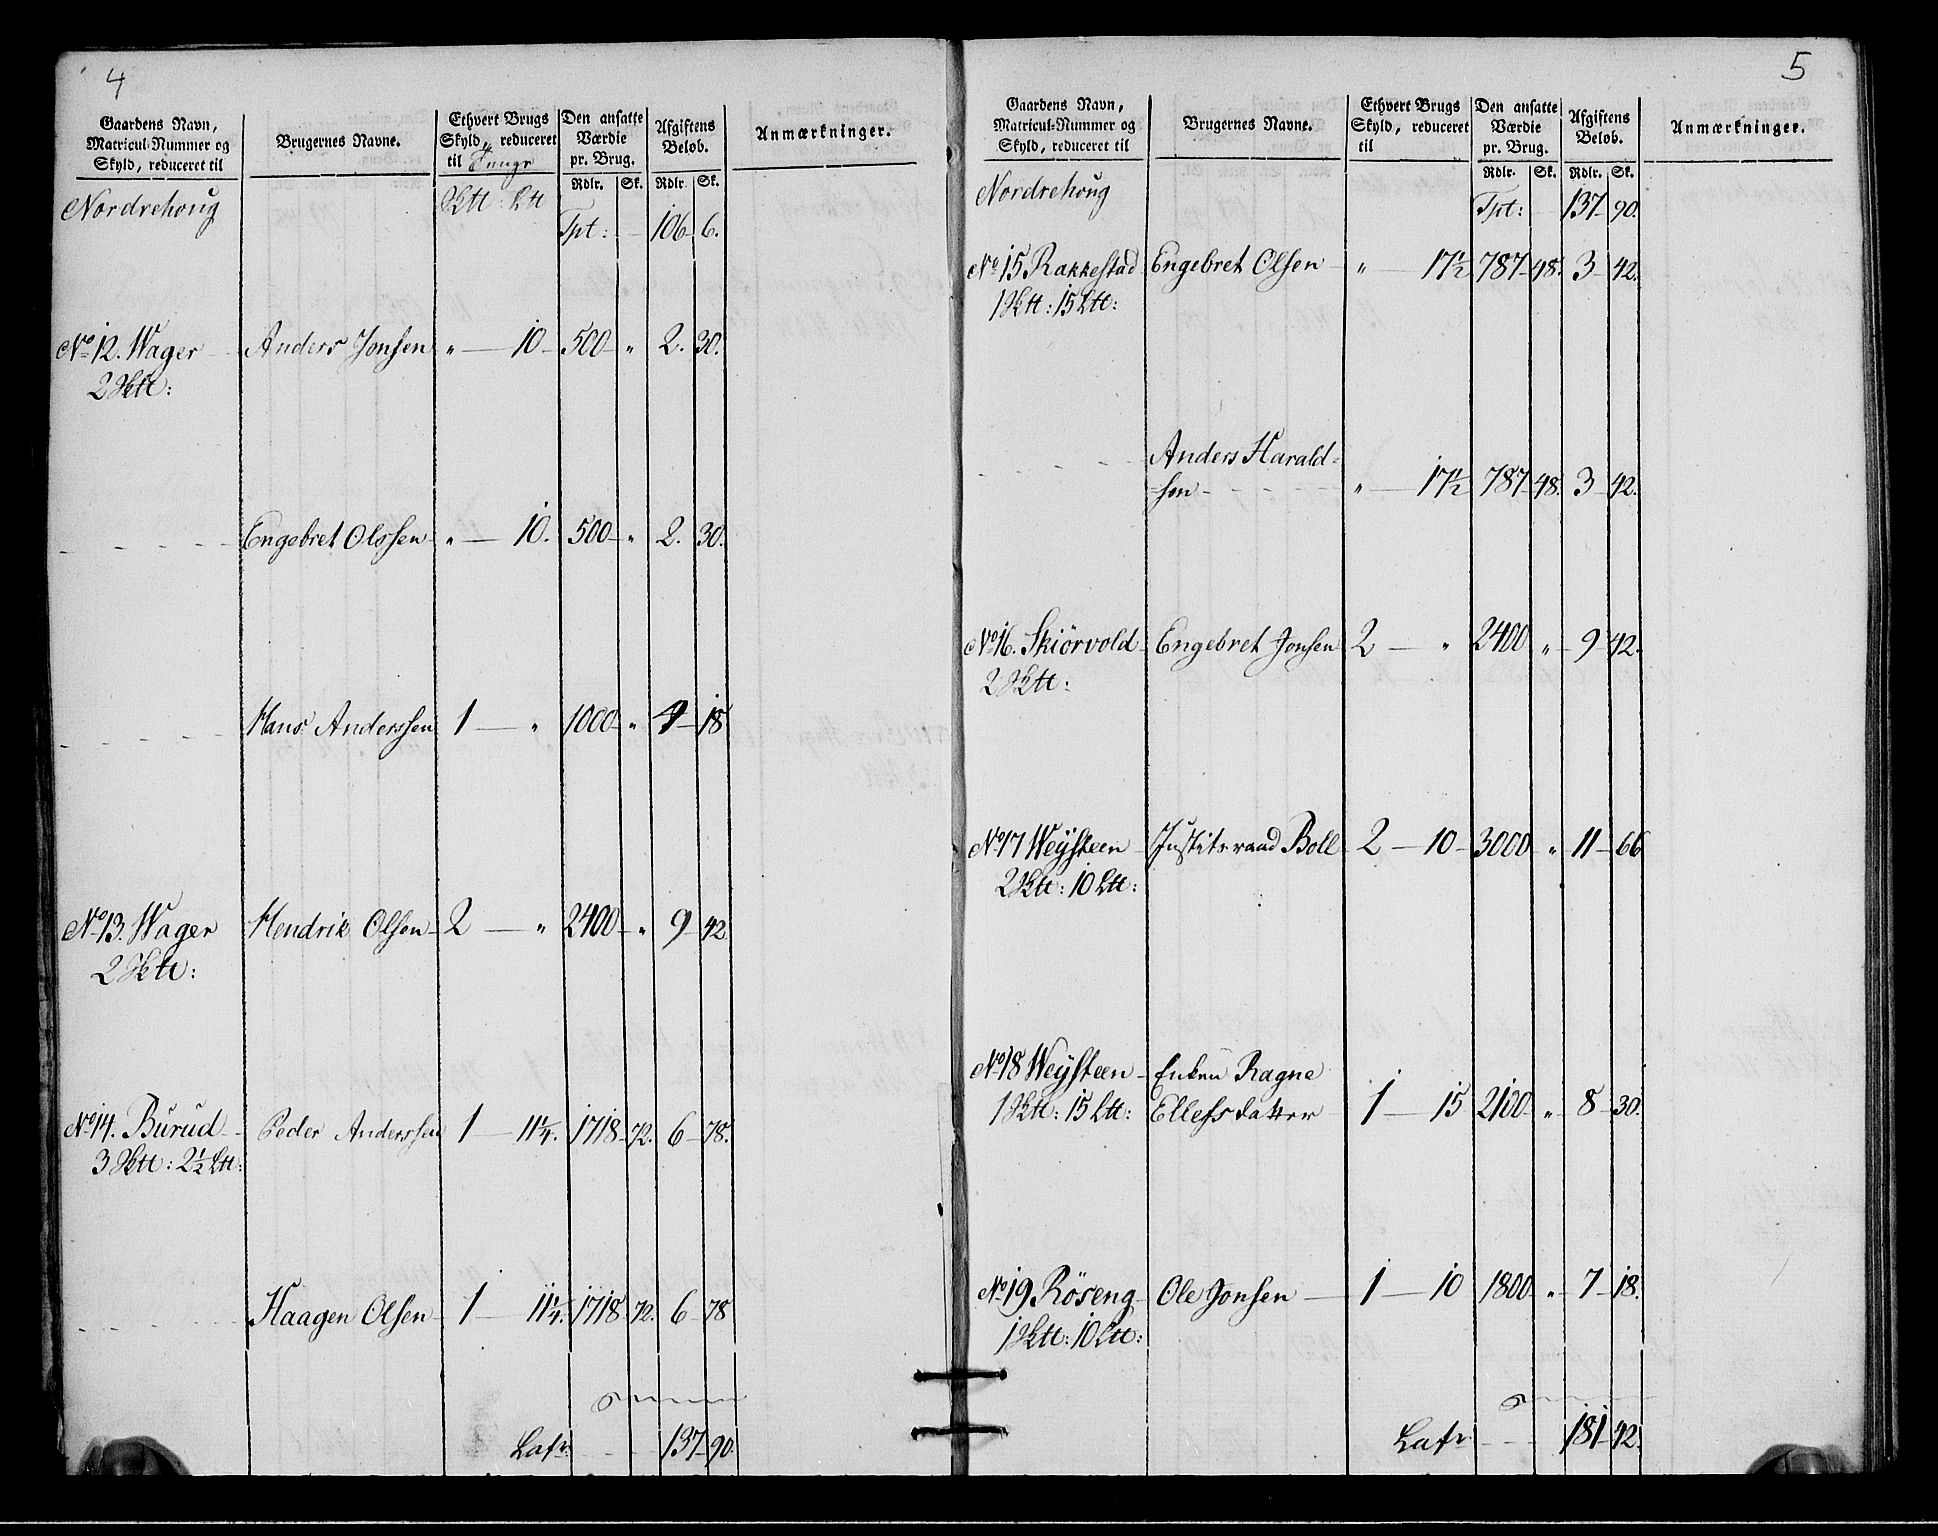 4
Gaardens Navn, Matricul-Nummer og Skyld, reduceret til
Brugernes Navne.
Ethvert Brugs Skyld, reduceret til Tunge
Den ansatte Værdie pr. Brug.
Afgiftens Beløb.
Anmærkninger.
Rdlr. Sk. Rdlr. Sk.
Nordrehoug
Tpt: 106 6.
No 12. Wager Anders Jonsen „ 10 500 „ 2. 30.
2 Sktt:
Engebret Olssen „ 10. 500 „ 2. 30.
Hans Anderssen 1 „ 1000 „ 4 18
No 13. Wager Hendrik Olsen 2 „ 2400 „ 9 42
2 Sktt:
No 14. Burud Peder Anderssen 1 11¼. 1718 72. 6 78.
3 Sktt: 2½ Ltt:
Haagen Olsen 1 11¼. 1718 72. 6 78
Latr 137 90.
5
Gaardens Navn, Matricul-Nummer og Skyld, reduceret til
Brugernes Navne.
Ethvert Brugs Skyld, reduceret til
Den ansatte Værdie pr. Brug.
Afgiftens Beløb.
Anmærkninger.
Rdlr. Sk. Rdlr. Sk.
Nordrehoug
Tpt: 137 90.
No 15 Rakkestad Engebret Olsen „ 17½ 787 48. 3 42.
1 Sktt: 15 Ltt:
Anders Harald=
=sen „ 17½ 787 48. 3 42.
No 16. Skiörvold Engebret Jonsen 2 „ 2400 „ 9 42.
2 Sktt:
No 17 Weÿsteen Justitsraad Boll 2 10 3000 „ 11 66
2 Sktt: 10 Ltt:
No 18 Weÿsteen Enken Ragne
1 Sktt: 15 Ltt: Ellefsdatter 1 15 2100 „ 8 30.
No 19 Röseng Ole Jonsen 1 10 1800 „ 7 18.
1 Sktt: 10 Ltt:
Latr 181 42.